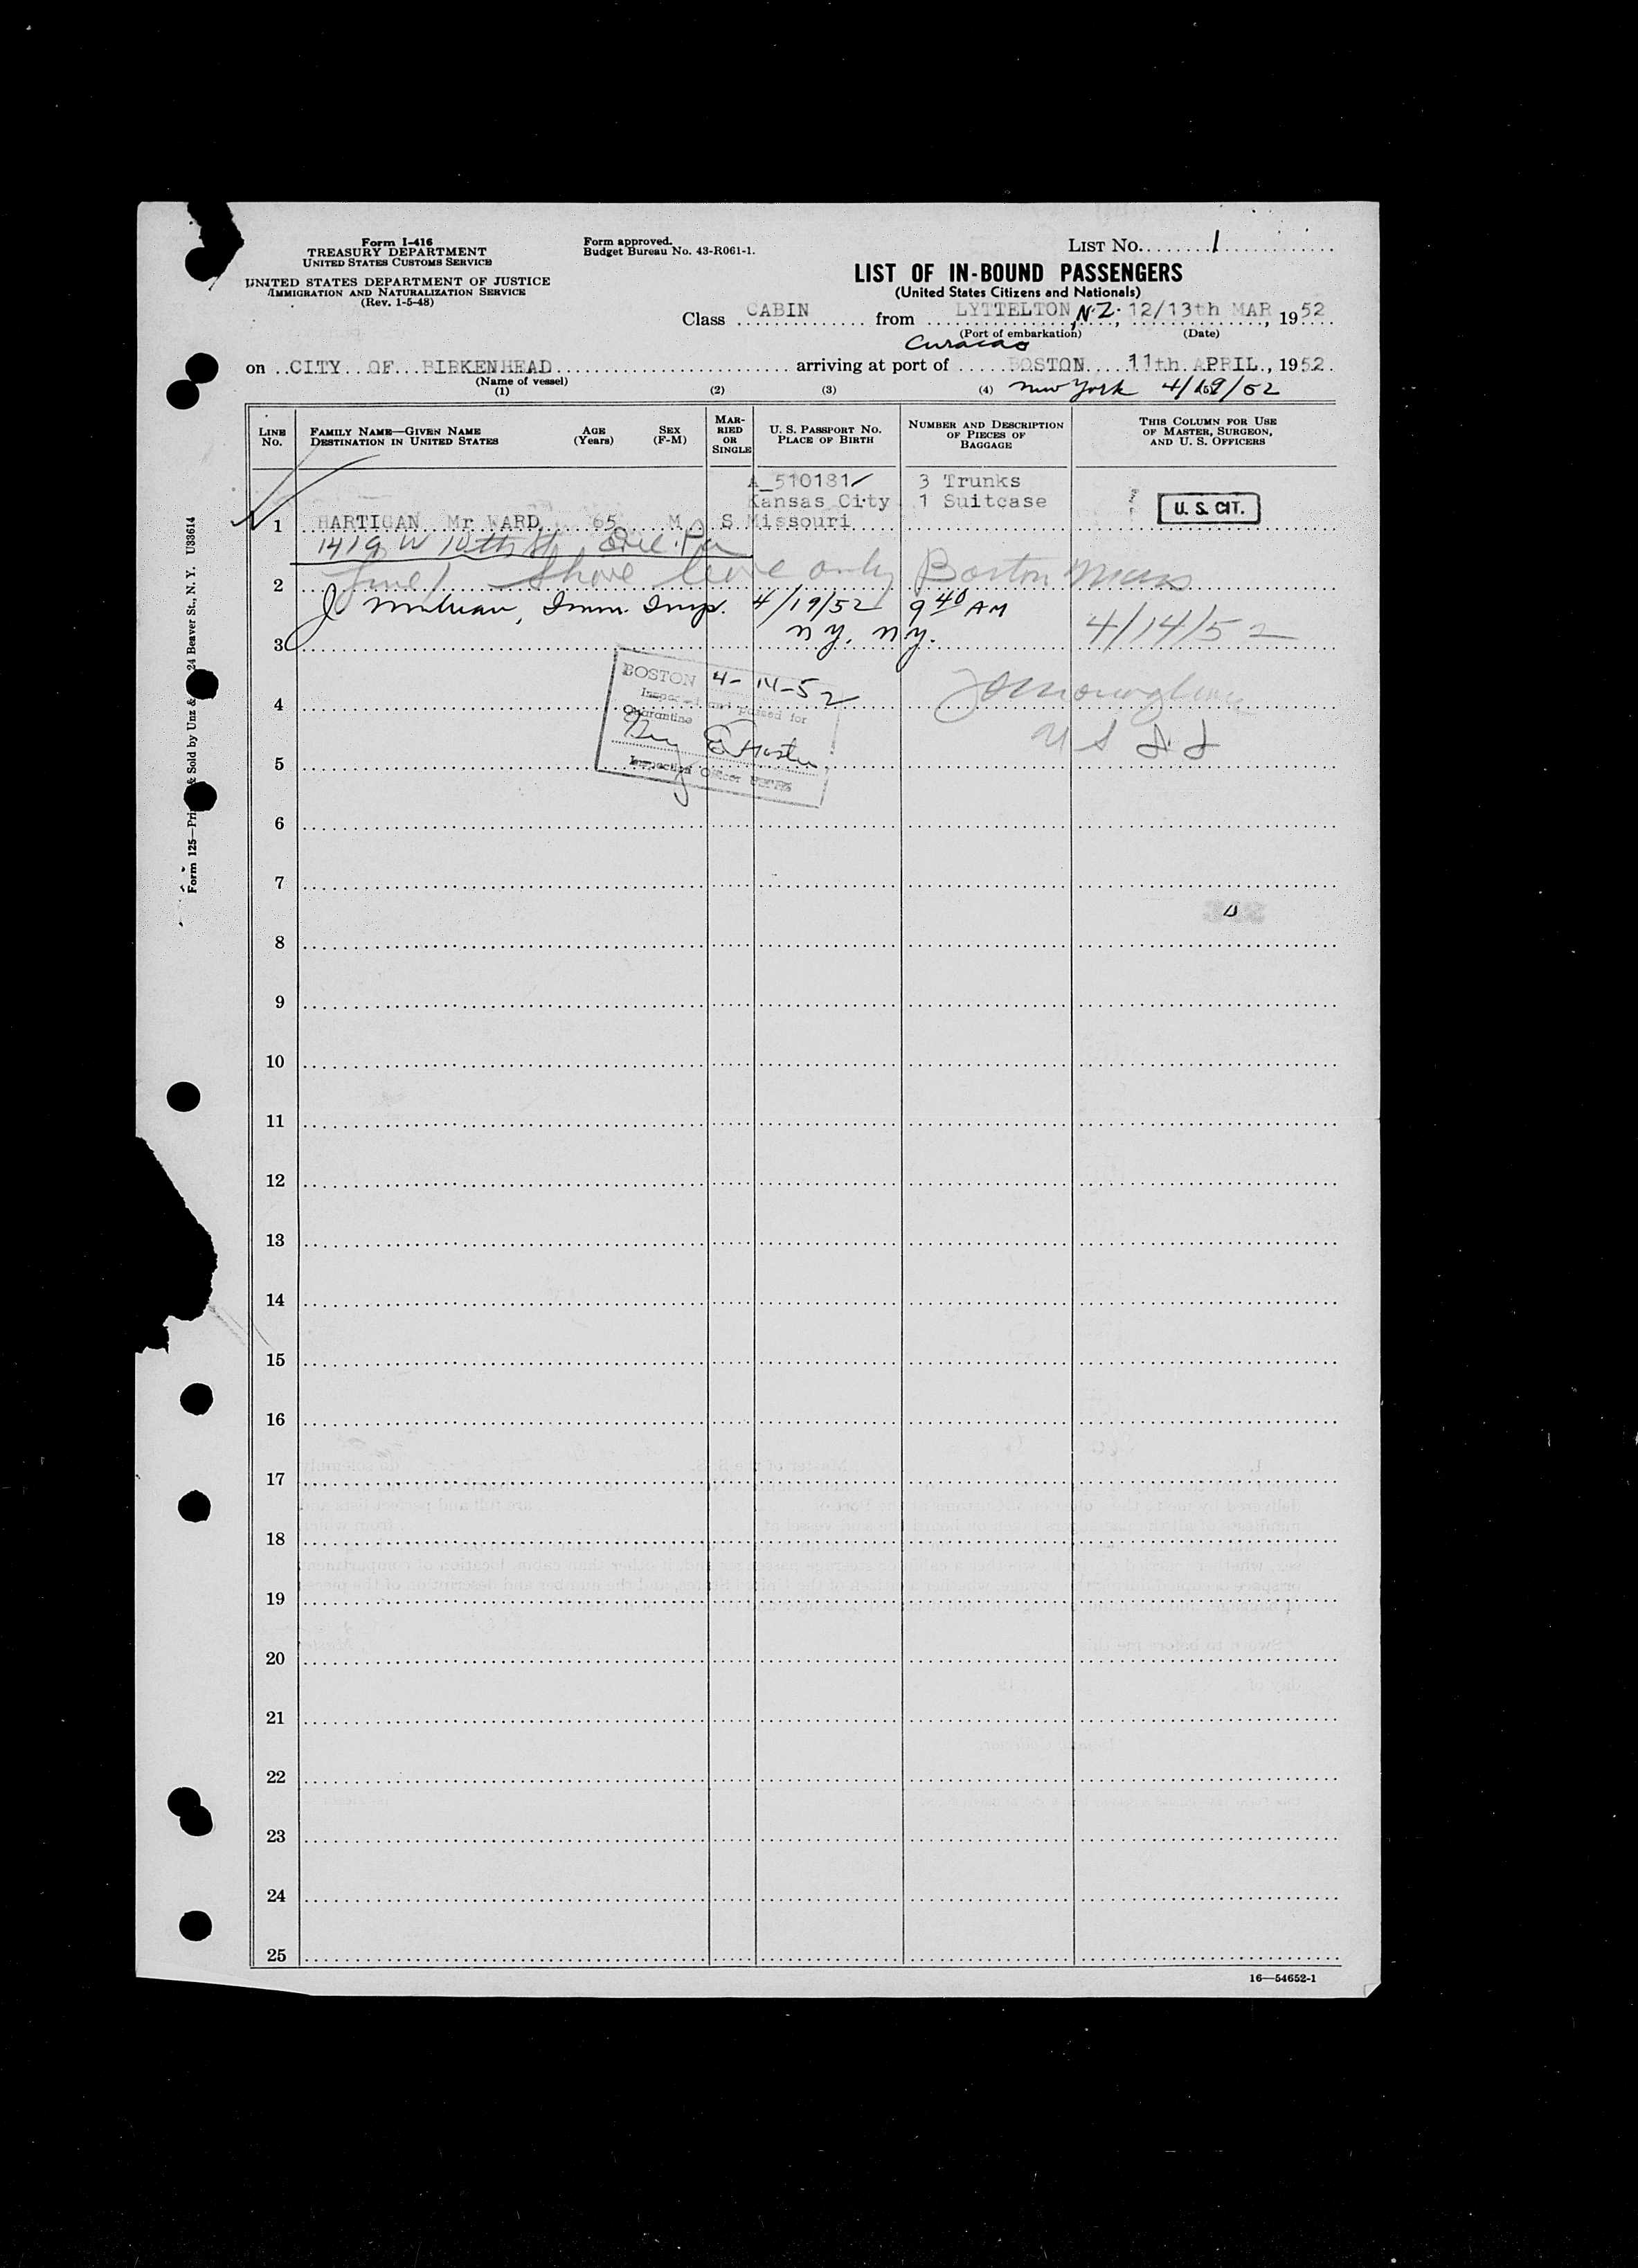 Form I-416
TREASURY DEPARTMENT
UNITED STATES CUSTOMS SERVICE
UNITED STATES DEPARTMENT OF JUSTICE
IMMIGRATION AND NATURALIZATION SERVICE
(Rev. 1-5-48)
Form approved.
Budget Bureau No. 43-R061-1.
LIST NO. 1
LIST OF IN-BOUND PASSENGERS
(United States Citizens and Nationals)
Class CABIN from LYTTELTON, N.Z. 12/13th MAR, 1952
(Port of embarkation) (Date)
Curacao
on CITY OF BIRKENHEAD arriving at port of BOSTON 11th APRIL, 1952.
(Name of vessel)
New York 4/19/52
(1) (2) (3) (4) (5)
LINE No.
FAMILY NAME—GIVEN NAME
DESTINATION IN UNITED STATES
AGE (Years)
SEX (F-M)
MARRIED OR SINGLE
U. S. PASSPORT NO.
PLACE OF BIRTH
NUMBER AND DESCRIPTION OF PIECES OF BAGGAGE
THIS COLUMN FOR USE OF MASTER, SURGEON, AND U. S. OFFICERS
A_510181 3 Trunks
Kansas City 1 Suitcase
U. S. CIT.
1 HARTIGAN Mr WARD 65 M S Missouri
1419 W 10th St Erie Pa
2 Line 1 Shore leave only Boston Mass
Imm. Insp. 4/19/52 9 40 AM
3 N.Y. N.Y. 4/14/52
BOSTON 4-14-52
Inspected and passed for
Quarantine
4
5
Inspection Officer USPHS
6
7
8
9
10
11
12
13
14
15
16
17
18
19
20
21
22
23
24
25
16—54652-1
Form 125— & Sold by Unz & 24 Beaver St., N. Y. U33614